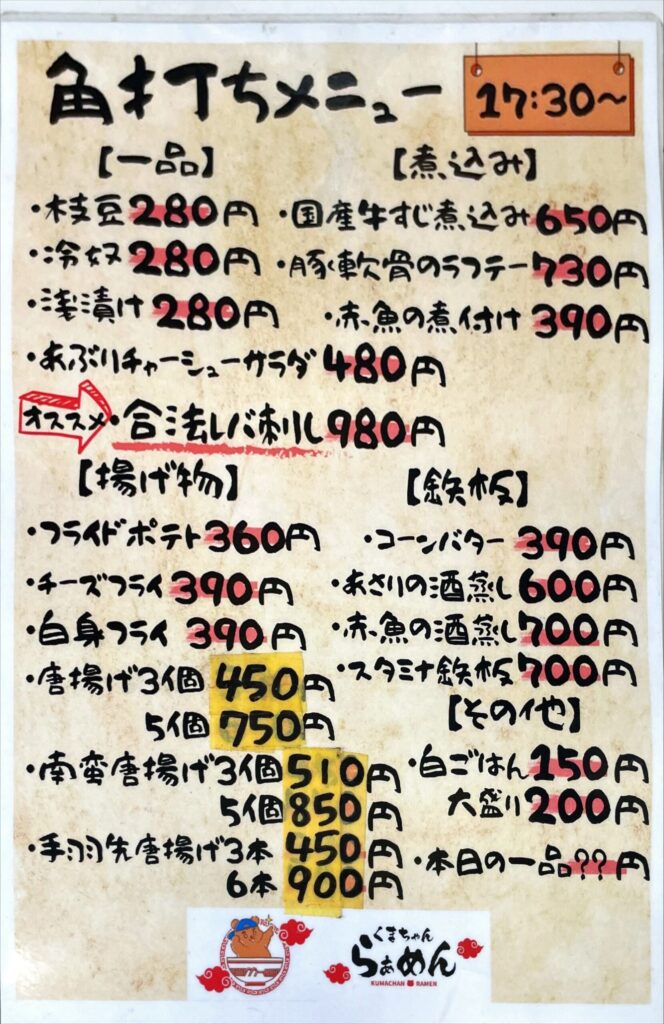 角打ちメニュー
17:30～
【一品】
・枝豆280円
・冷奴280円
・浅漬け280円
・あぶりチャーシューサラダ480円
オススメ・合法レバ刺し980円
【煮込み】
・国産牛すじ煮込み650円
・豚軟骨のラフテー730円
・赤魚の煮付け390円
【揚げ物】
・フライドポテト360円
・チーズフライ390円
・白身フライ390円
・唐揚げ3個450円
5個750円
・南蛮唐揚げ3個510円
5個850円
・手羽先唐揚げ3本450円
6本900円
【鉄板】
・コーンバター390円
・あさりの酒蒸し600円
・赤魚の酒蒸し700円
・スタミナ鉄板700円
【その他】
・白ごはん150円
大盛り200円
・本日の一品??円
くまちゃん
らぁめん
KUMACHAN RAMEN